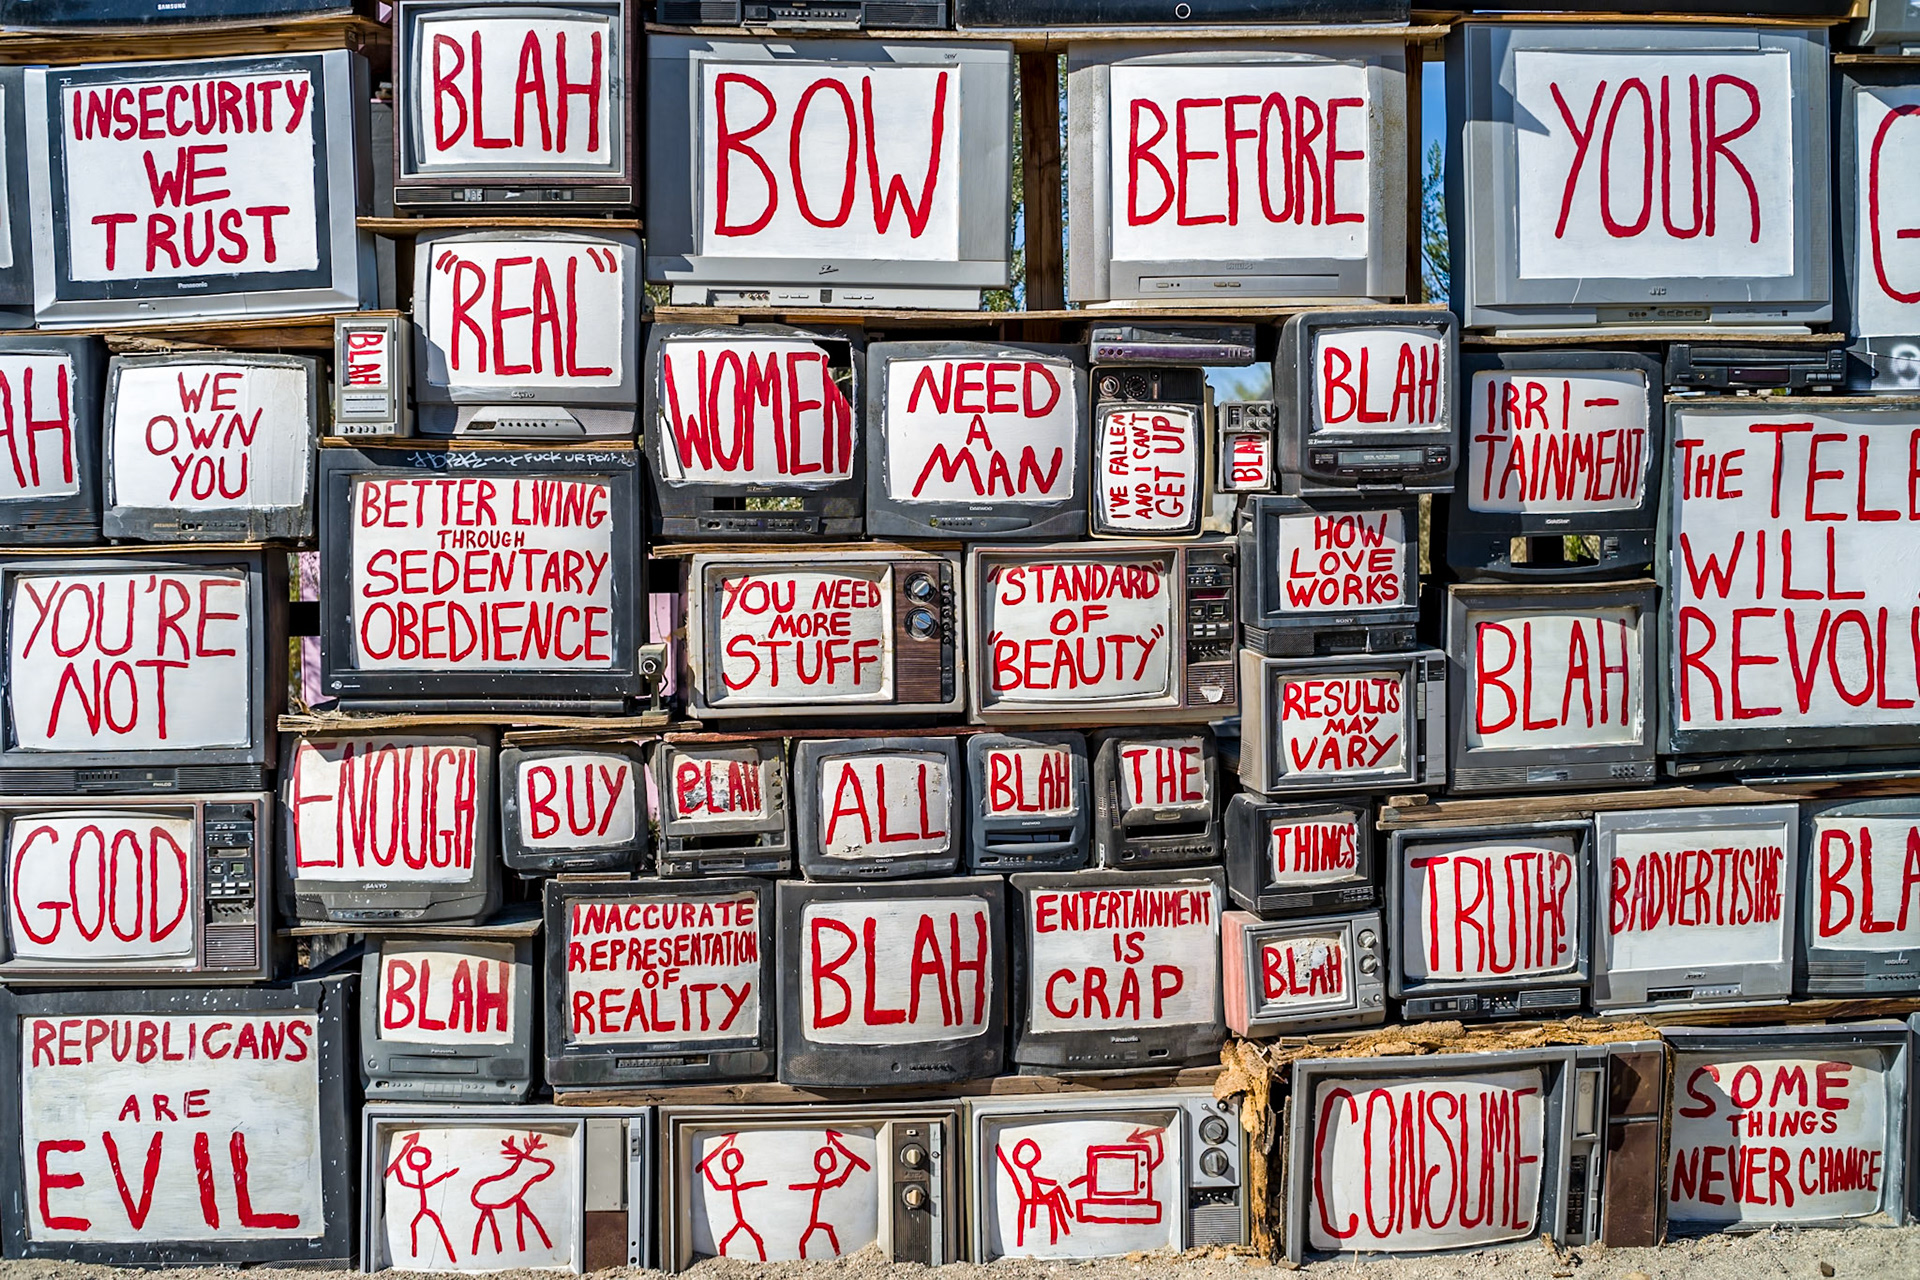 SAMSUNG
INSECURITY
WE
TRUST
Panasonic
BLAH
BOW
BEFORE
YOUR
G
"REAL"
SANYO
PHILIPS
JVC
AH
WE
OWN
YOU
BLAH
WOMEN
NEED
A
MAN
DAEWOO
I'VE FALLEN
AND I CAN'T
GET UP
BLAH
BLAH
IRRI-
TAINMENT
GoldStar
THE TELE
WILL
REVOL
FUCK UR
BETTER LIVING
THROUGH
SEDENTARY
OBEDIENCE
YOU'RE
NOT
PHILCO
YOU NEED
MORE
STUFF
"STANDARD"
OF
"BEAUTY"
HOW
LOVE
WORKS
SONY
RESULTS
MAY
VARY
BLAH
GOOD
ENOUGH
SANYO
BUY
BLAH
ALL
ORION
BLAH
THE
THINGS
TRUTH?
BADVERTISING
BLA
BLAH
Panasonic
INACCURATE
REPRESENTATION
OF
REALITY
BLAH
ENTERTAINMENT
IS
CRAP
Panasonic
BLAH
REPUBLICANS
ARE
EVIL
CONSUME
SOME
THINGS
NEVER CHANGE